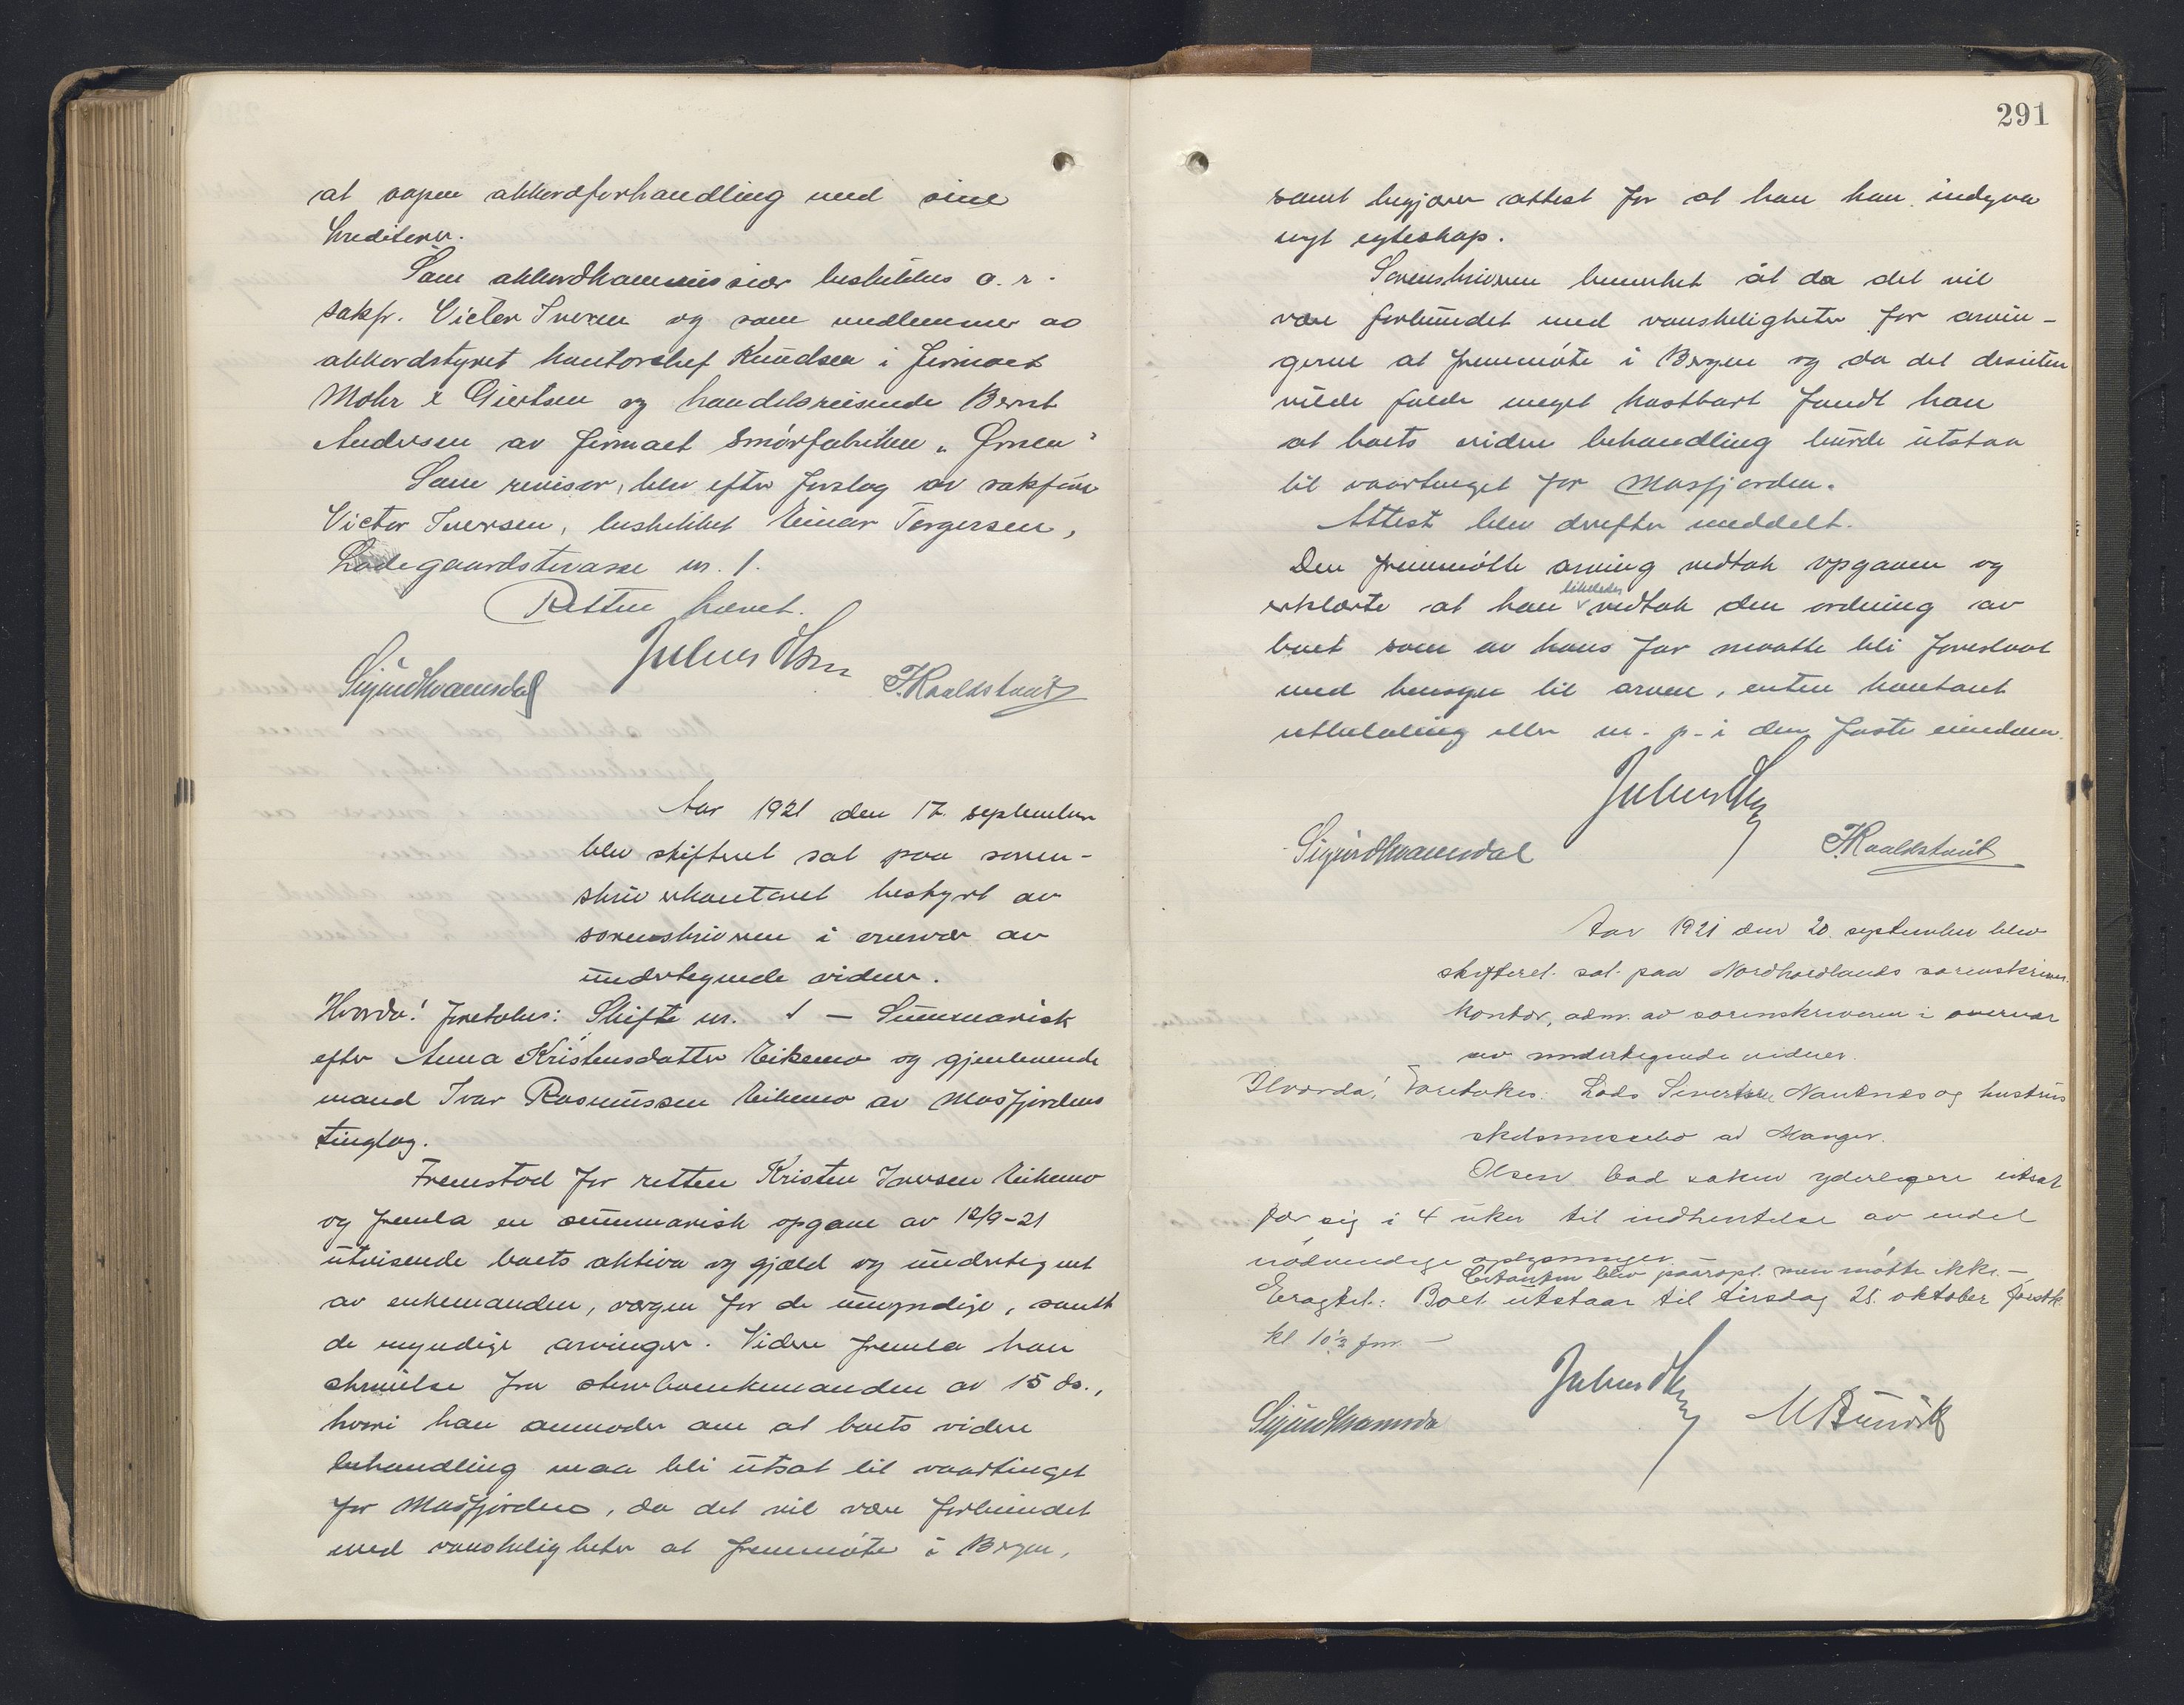 at aapne akkordforhandling med sine
kreditorer.
Som akkordkommissær beskikkes o. r.
sakf. Victor Iversen og som medlemmer av
akkordstyret kontorchef Knudsen i firmaet
Mohr & Giertsen og handelsreisende Bernt
Andersen av firmaet Smörfabriken "Ørnen"
Som revisor, blev efter forslag av sakför
Victor Iversen, beskikket Einar Torgersen,
Ladegaardsterasse nr. 1.
Retten hævet.
Julius Olsen
Sigurd Kvamsdal
Aar 1921 den 17. september
blev skifteret sat paa soren-
skriverkontoret bestyrt av
sorenskriveren i overvær av
undertegnede vidner.
Hvorda! foretokes: Skifte nr. 1 — Summarisk
efter Anna Kristensdatter Eikemo og gjenlevende
mand Ivar Rasmussen Eikemo av Masfjordens
tinglag.
Fremstod for retten Kristen Iversen Eikemo
og fremla en summarisk opgave av 12/9-21
utvisende boets aktiva og gjæld og undertegnet
av enkemanden, vergen for de umyndige, samt
de myndige arvinger. Videre fremla han
skrivelse fra stervboenkemanden av 15 ds.,
hvori han anmoder om at boets videre
behandling maa bli utsat til vaartinget
for Masfjorden, da det vil være forbundet
med vanskeligheter at fremmöte i Bergen,
291
samt begjærer attest for at han kan indgaa
nyt egteskap.
Sorenskriveren bemerket at da det vil
være forbundet med vanskeligheter for arvin-
gerne at fremmöte i Bergen og da det desuten
vilde falde meget kostbart fandt han
at boets videre behandling burde utstaa
til vaartinget for Masfjorden.
Attest blev derefter meddelt.
Den fremmötte arving vedtok opgaven og
erklærte at han likeledes vedtok den ordning av
boet som av hans far maatte bli foreslaat
med hensyn til arven, enten kontant
utbetaling eller m. p. i den faste eiendom.
Julius Olsen
Sigurd Kvamsdal
Aar 1921 den 20. september blev
skifteret sat paa Nordhordlands sorenskriver-
kontor, adm. av sorenskriveren i overvær
av undertegnede vidner.
Hvorda! Foretokes: Lads Sivertsen Nautnes og hustrus
skilsmissebo av Manger.
Olsen bad saken yderligere utsat
for sig i 4 uker til indhentelse av endel
nödvendige oplysninger. —
Citanten blev paaropt men mötte ikke. —
Eragtet: Boet utstaar til tirsdag 25. oktober förstk.
kl 10½ fm. —
Julius Olsen
Sigurd Kvamsda